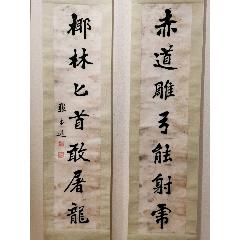 赤道雕弓能射虎
椰林匕首敢屠龍